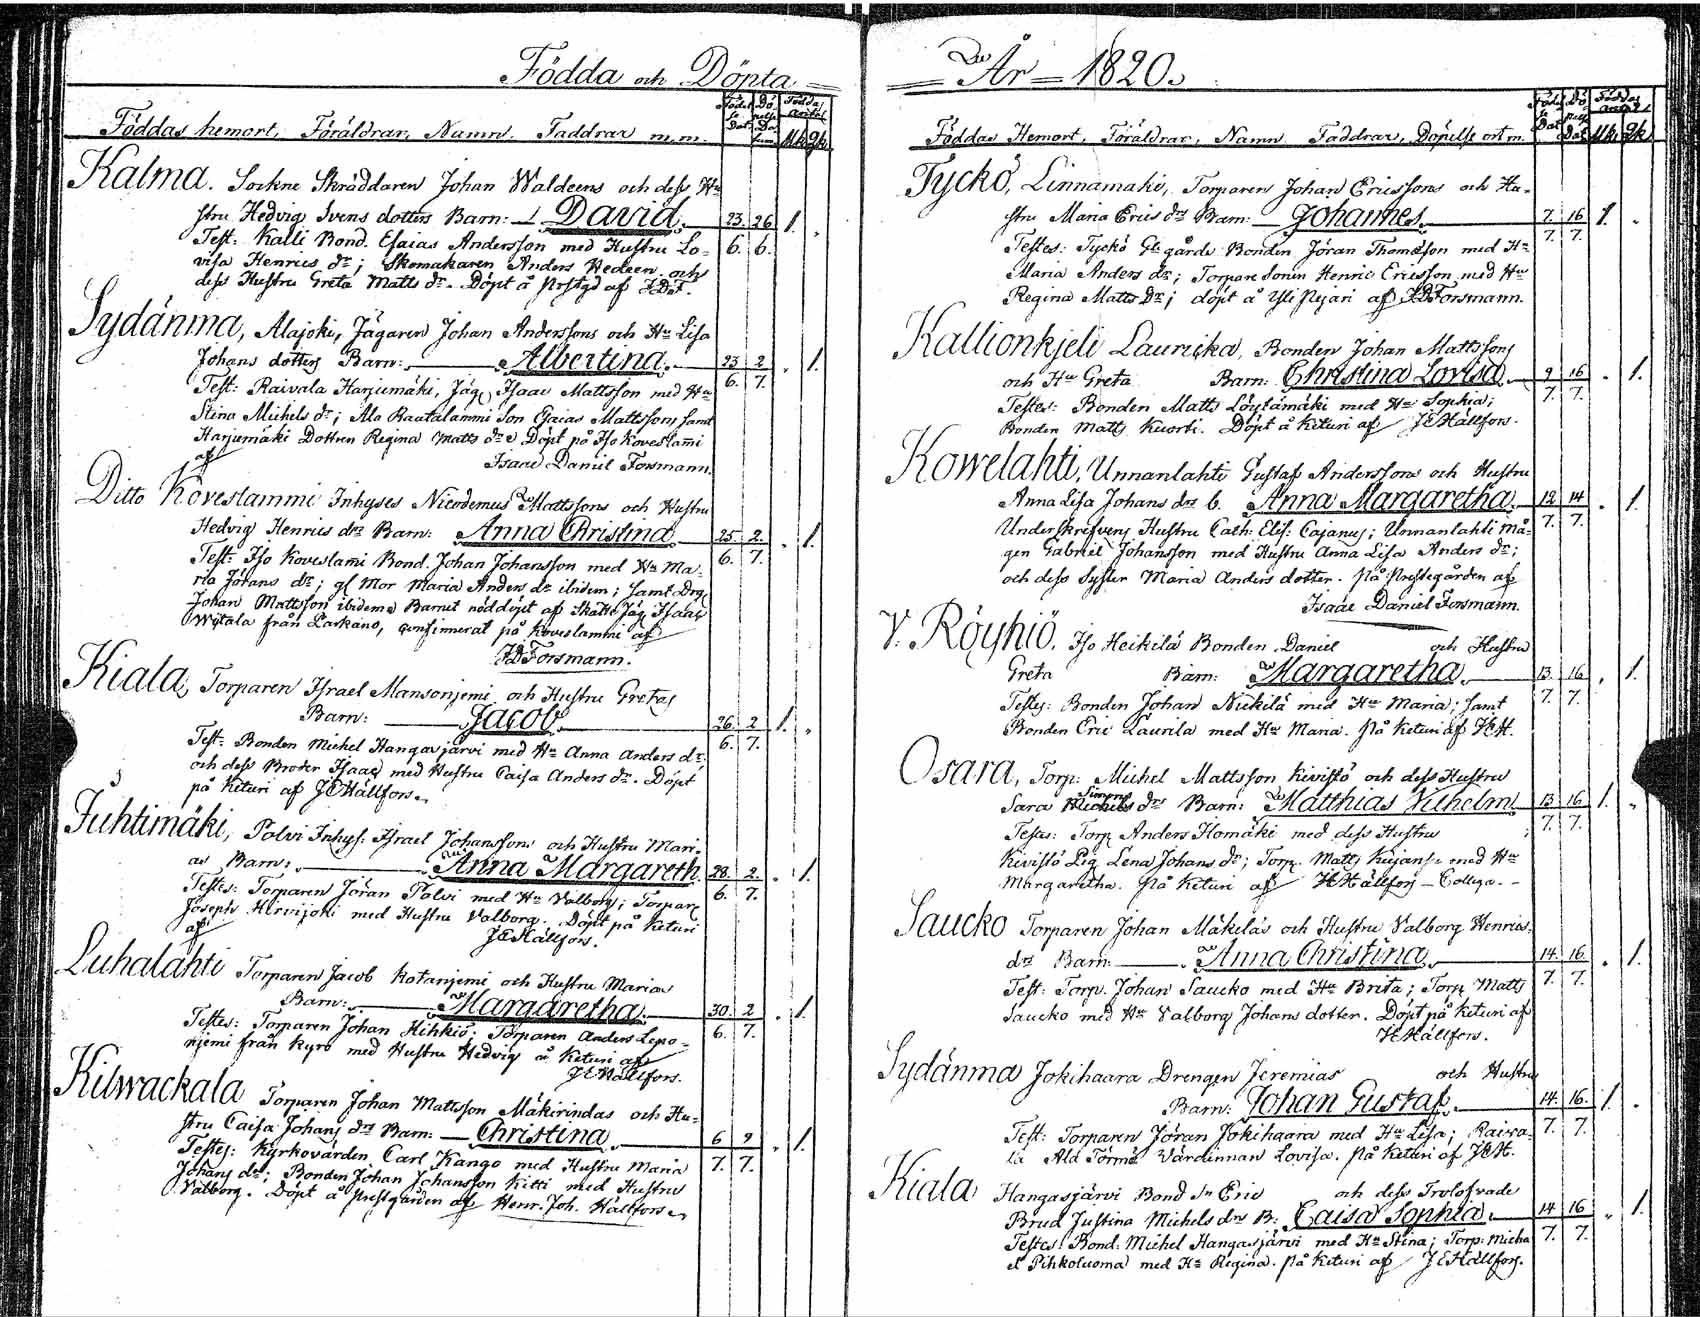 Födda och Döpta
Föddas hemort, Föräldrar, Namn, Faddrar m.m.
Födelse Dat. Döpelse Datum Födda antal Mk. Qk.
Kalma. Sockne Skräddaren Johan Waldeens och dess Hu
stru Hedvig Svens dotters Barn: David. 23. 26 1.
Test: Kalli Bond. Esaias Andersson med Hustru Lo- 6. 6.
visa Henrics dr; Skomakaren Anders Hedeen och
dess Hustru Greta Matts dr. Döpt å Prstgd af IDF.
Sydänma, Alajoki, Jägaren Johan Anderssons och Hu Lisa
Johans dotters Barn: Albertina. 23 2 1.
Test: Raivala Harjumäki, Jäg Isaac Mattsson med Hu 6. 7.
Stina Michels dr; Ala Rautalammi Son Esaias Mattsson samt
Harjumäki Dottren Regina Matts dr Döpt på Iso Koveslami
af
Isaac Daniel Forsmann.
Ditto Koveslammi Inhyses Nicodemus Mattssons och Hustru
Hedvig Henrics drs Barn: Anna Christina 25. 2. 1.
Test: Iso Koveslami Bond. Johan Johansson med Hu Ma- 6. 7.
ria Jörans dr; gl Mor Maria Anders dr ibidem; samt Drg
Johan Mattsson ibidem Barnet nöddöpt af Skatte Jäg Isaac
Witala från Parkano, confirmerat på Koveslammi af
IDForsmann.
Kiala, Torparen Israel Mansonjemi och Hustru Gretas
Barn: Jacob 26. 2 1.
Test: Bonden Michel Hangasjärvi med Hu Anna Anders dr. 6. 7.
och dess Broder Isaac med Hustru Caisa Anders dr. Döpt
på Keturi af JEHällfors.
Juhtimäki, Polvi Inhys: Israel Johanssons och Hustru Mari-
as Barn: Anna Margareth. 28. 2. 1.
Testes: Torparen Jöran Polvi med Hu Valborg; Torpare 6. 7.
Joseph Hirvijoki med Hustru Valborg. Döpt på Keturi
af
JEHällfors.
Luhalahti Torparen Jacob Kotanjemi och Hustru Marias
Barn: Margaretha. 30. 2 1.
Testes: Torparen Johan Hihkiö; Torparen Anders Lepo- 6. 7.
njemi från Kyro med Hustru Hedvig å Keturi af
JEHällfors.
Kilwackala Torparen Johan Mattsson Mäkirindas och Hu-
stru Caisa Johans drs Barn: Christina 6 9 1.
Testes: Kyrkovärden Carl Kango med Hustru Maria 7. 7.
Johans dr; Bonden Johan Johansson Kitti med Hustru
Valborg. Döpt å Prestgården af Henr. Joh. Hällfors.
År 1820.
Föddas Hemort, Föräldrar, Namn Faddrar, Döpelse ort m.
Födelse Dat. Döpelse Dat. Föddas antal Mk. Qk.
Tyckö, Linnamaki, Torparen Johan Ericssons och Hu-
stru Maria Erics drs Barn: Johannes. 7. 16 1.
Testes: Tyckö Gl: gårds Bonden Jöran Thomesson med Hu 7. 7.
Maria Anders dr; Torpare Sonen Henric Ericsson med Hu
Regina Matts dr; döpt å Yli Pejari af IDForsmann.
Kallionkjeli Lauricka, Bonden Johan Mattssons
och Hu Greta Barn: Christina Lovisa 9 16 1.
Testes: Bonden Matts Löytämäki med Hu Sophia; 7. 7.
Bonden Matts Kuorti. Döpt å Keturi af JEHällfors.
Kowelahti, Unnanlahti Gustaf Anderssons och Hustru
Anna Lisa Johans drs b. Anna Margaretha. 12 14 1.
Underskrefvens Hustru Cath: Elis: Cajanus; Unnanlahti Må- 7. 7.
gen Gabriel Johansson med Hustru Anna Lisa Anders dr;
och dess Syster Maria Anders dotter. På Prestegården af
Isaac Daniel Forsmann.
V. Röyhiö. Iso Heikilä Bonden Daniel och Hustru
Greta Barn: Margaretha. 13. 16 1.
Testes: Bonden Johan Niekilä med Hu Maria; samt 7. 7.
Bonden Eric Laurila med Hu Maria. På Keturi af JEH.
Osara, Torp: Michel Mattsson Kivistö och dess Hustru
Simons
Sara Michels drs Barn: Matthias Vilhelm. 13 16 1.
Testes: Torp Anders Homäki med dess Hustru ; 7. 7.
Kivistö Pig Lena Johans dr; Torp. Matts Kujans: med Hu
Margaretha. På Keturi af HHällfors – Collega. –
Saucko Torparen Johan Mäkeläs och Hustru Valborg Henrics-
drs Barn: Anna Christina 14. 16. 1.
Test: Torp. Johan Saucko med Hu Brita; Torp Matts 7. 7.
Saucko med Hu Valborg Johans dotter. Döpt på Keturi af
HHällfors.
Sydänma Jokihaara Drengen Jeremias och Hustru
Barn: Johan Gustaf. 14. 16. 1.
Test: Torparen Jöran Jokihaara med Hu Lisa; Raiva- 7. 7.
la Ala Törmä Värdinnan Lovisa. På Keturi af JEH.
Kiala Hangasjärvi Bond Sn Eric och dess Trolofvade
Brud Justina Michels drs B: Caisa Sophia. 14 16 1.
Testes: Bond: Michel Hangasjärvi med Hu Stina; Torp: Micha 7. 7.
el Pihkoluoma med Hu Regina. På Keturi af JEHällfors.